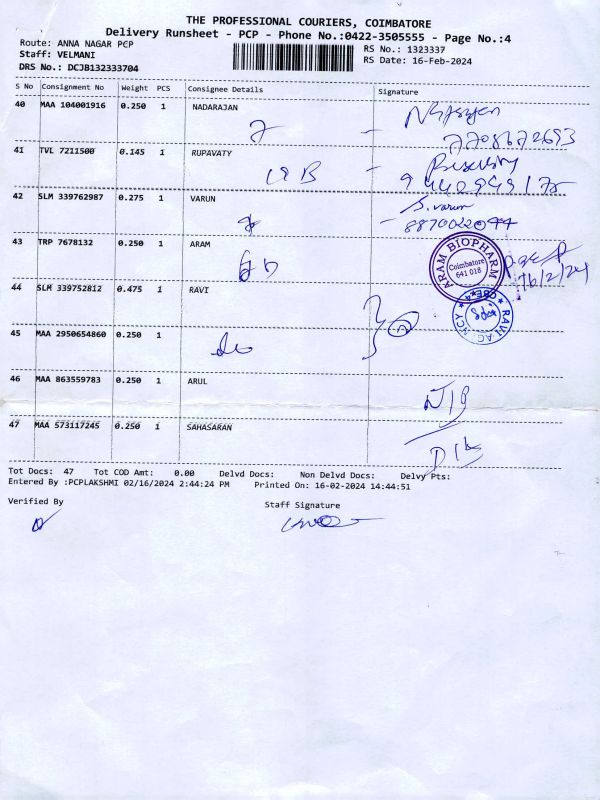 THE PROFESSIONAL COURIERS, COIMBATORE
Delivery Runsheet - PCP - Phone No.:0422-3505555 - Page No.:4
Route: ANNA NAGAR PCP
RS No.: 1323337
Staff: VELMANI
RS Date: 16-Feb-2024
DRS No.: DCJB132333704
S No Consignment No Weight PCS Consignee Details Signature
40 MAA 104001916 0.250 1 NADARAJAN
7
41 TVL 7211500 0.145 1 RUPAVATY
19 B
42 SLM 339762987 0.275 1 VARUN
S. varun
43 TRP 7678132 0.250 1 ARAM
ARAM BIOPHARM
Coimbatore
641 018
16/2/24
44 SLM 339752812 0.475 1 RAVI
RAVI AGENCY
45 MAA 2950654860 0.250 1
46 MAA 863559783 0.250 1 ARUL
47 MAA 573117245 0.250 1 SAHASARAN
Tot Docs: 47 Tot COD Amt: 0.00 Delvd Docs: Non Delvd Docs: Delvy Pts:
Entered By :PCPLAKSHMI 02/16/2024 2:44:24 PM Printed On: 16-02-2024 14:44:51
Verified By
Staff Signature